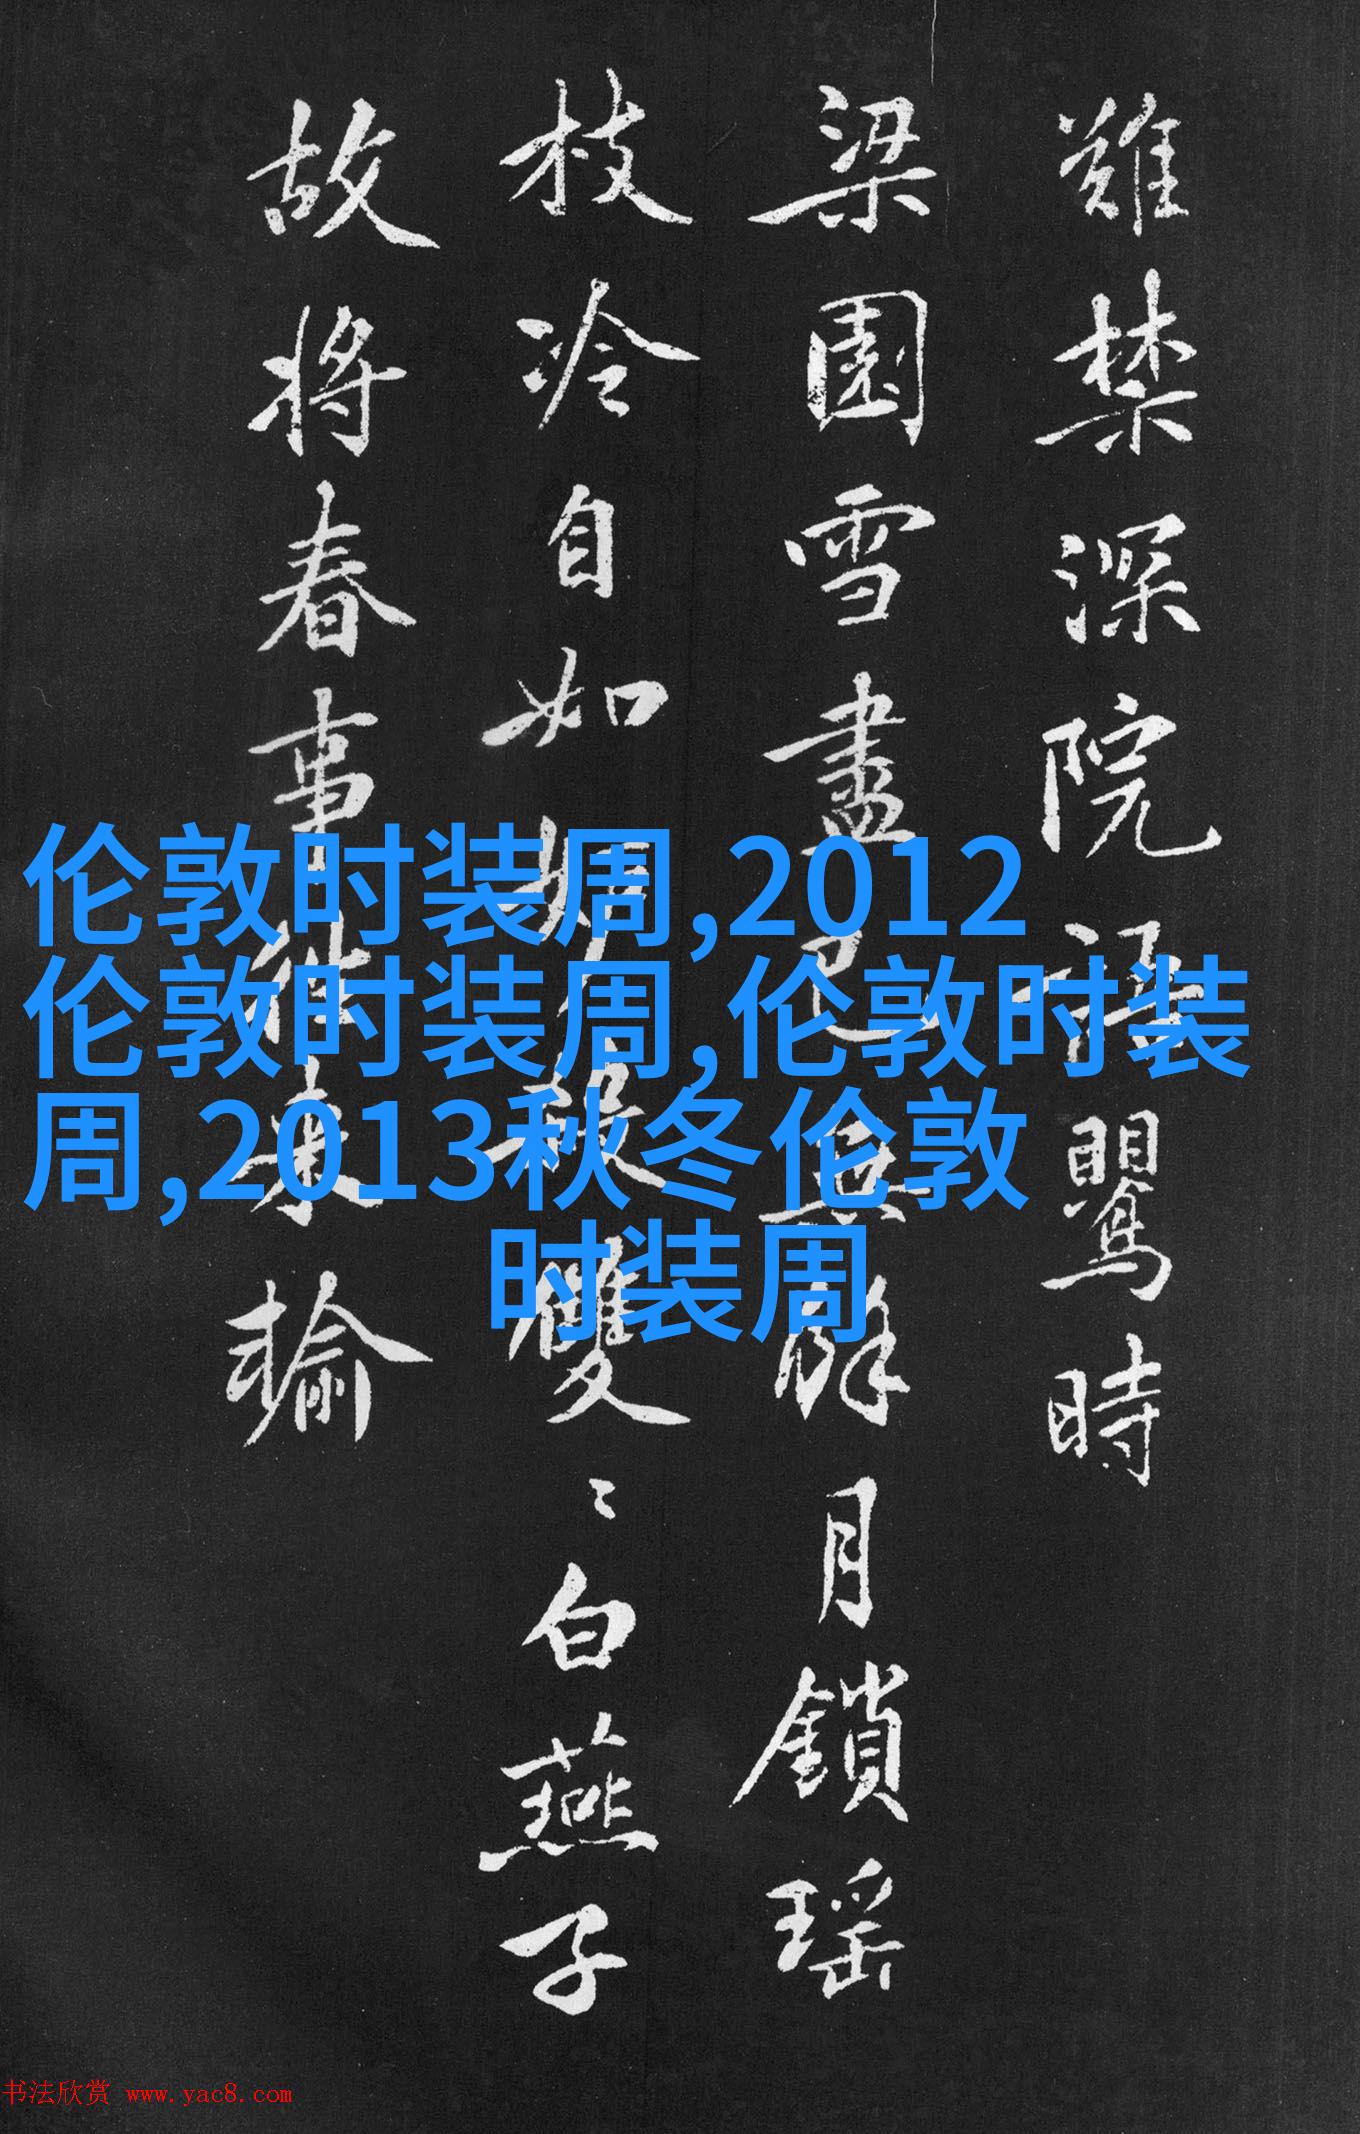 難禁深院語鸎時
梁園雪盡已無餘月鎖瑤
枝冷自如妒殺雙〻白燕子
故將春事往來輸
伦敦时装周,2012
伦敦时装周,伦敦时装
周,2013秋冬伦敦
时装周
书法欣赏 www.yac8.com